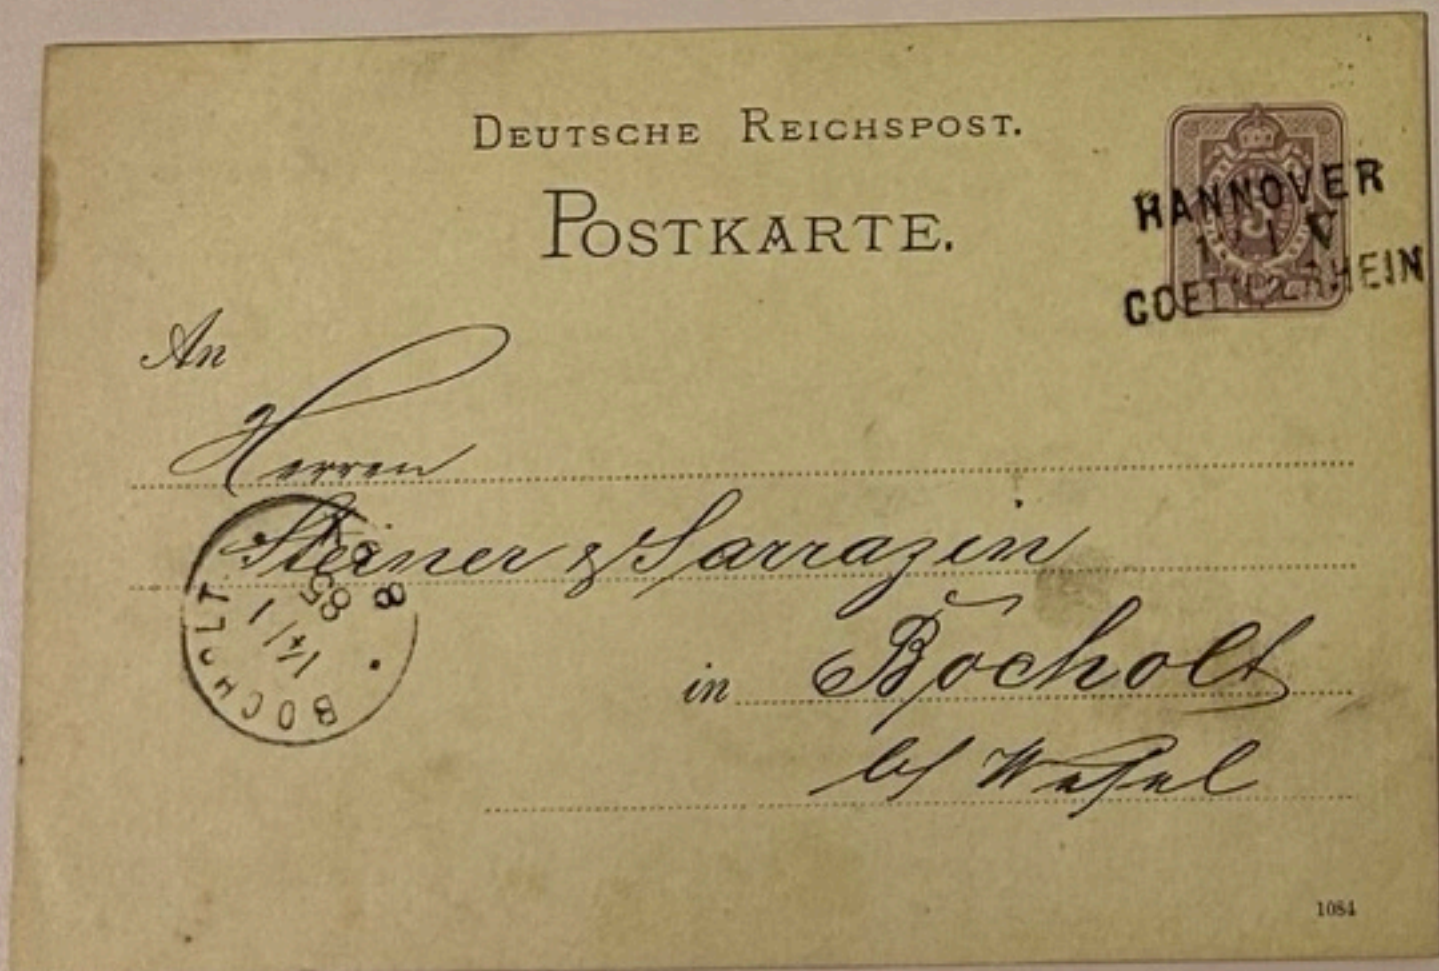 DEUTSCHE REICHSPOST.
POSTKARTE.
HANNOVER
1 V
COELN RHEIN
An
Herren
Sterner & Sarrazin
in Bocholt
b/ Wesel
BOCHOLT
14/1
85
8
1084